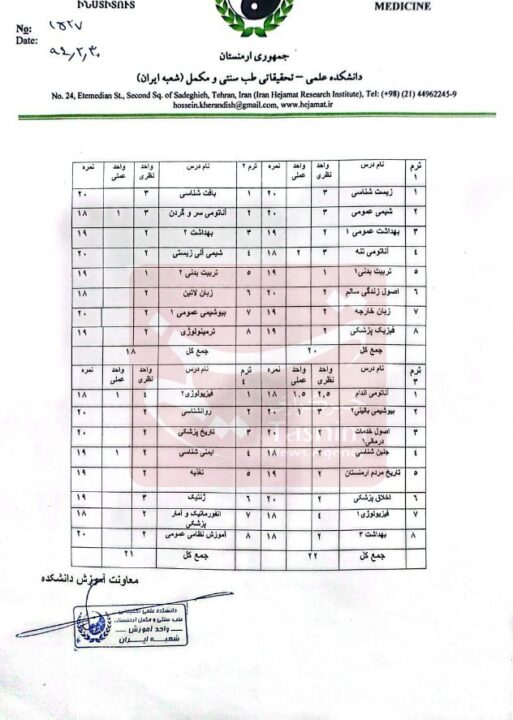 ԻՆՍՏԻՏՈՒՏ
MEDICINE
No: ۱۵۲۷
Date: ۹۴,۲,۳۰
جمهوری ارمنستان
دانشکده علمی – تحقیقاتی طب سنتی و مکمل (شعبه ایران)
No. 24, Etemedian St., Second Sq. of Sadeghieh, Tehran, Iran (Iran Hejamat Research Institute), Tel: (+98) (21) 44962245-9
hossein.kherandish@gmail.com, www.hejamat.ir
ترم ۱ نام درس واحد نظری واحد عملی نمره ترم ۲ نام درس واحد نظری واحد عملی نمره
۱ زیست شناسی ۳ ۲۰ ۱ بافت شناسی ۳ ۲۰
۲ شیمی عمومی ۳ ۲۰ ۲ آناتومی سر و گردن ۳ ۱ ۱۸
۳ بهداشت عمومی ۱ ۲ ۱۹ ۳ بهداشت ۲ ۲ ۱۹
۴ آناتومی تنه ۳ ۲ ۱۸ ۴ شیمی آلی زیستی ۲ ۲۰
۵ تربیت بدنی۱ ۱ ۱۹ ۵ تربیت بدنی ۲ ۱ ۱۹
۶ اصول زندگی سالم ۲ ۲۰ ۶ زبان لاتین ۲ ۱۸
۷ زبان خارجه ۲ ۱۹ ۷ بیوشیمی عمومی ۱ ۲ ۲۰
۸ فیزیک پزشکی ۲ ۱۹ ۸ ترمینولوژی ۲ ۱۹
جمع کل ۲۰ جمع کل ۱۸
ترم ۳ نام درس واحد نظری واحد عملی نمره ترم ۴ نام درس واحد نظری واحد عملی نمره
۱ آناتومی اندام ۲,۵ ۱,۵ ۱۸ ۱ فیزیولوژی۲ ۴ ۱ ۱۸
۲ بیوشیمی بالینی۲ ۳ ۱ ۲۰ ۲ روانشناسی ۲ ۲۰
۳ اصول خدمات درمانی۱ ۲ ۲۰ ۳ تاریخ پزشکی ۲ ۲۰
۴ جنین شناسی ۲ ۱۸ ۴ ایمنی شناسی ۲ ۱ ۱۹
۵ تاریخ مردم ارمنستان ۲ ۱۹ ۵ تغذیه ۲ ۱۹
۶ اخلاق پزشکی ۲ ۲۰ ۶ ژنتیک ۳ ۱۹
۷ فیزیولوژی۱ ۴ ۱۸ ۷ انفورماتیک و آمار پزشکی ۲ ۱۸
۸ بهداشت ۳ ۲ ۱۸ ۸ آموزش نظامی عمومی ۲ ۲۰
جمع کل ۲۲ جمع کل ۲۱
معاونت آموزش دانشکده
دانشکده علمی تحقیقاتی
طب سنتی و مکمل ارمنستان
واحد آموزش
شعبه ایران